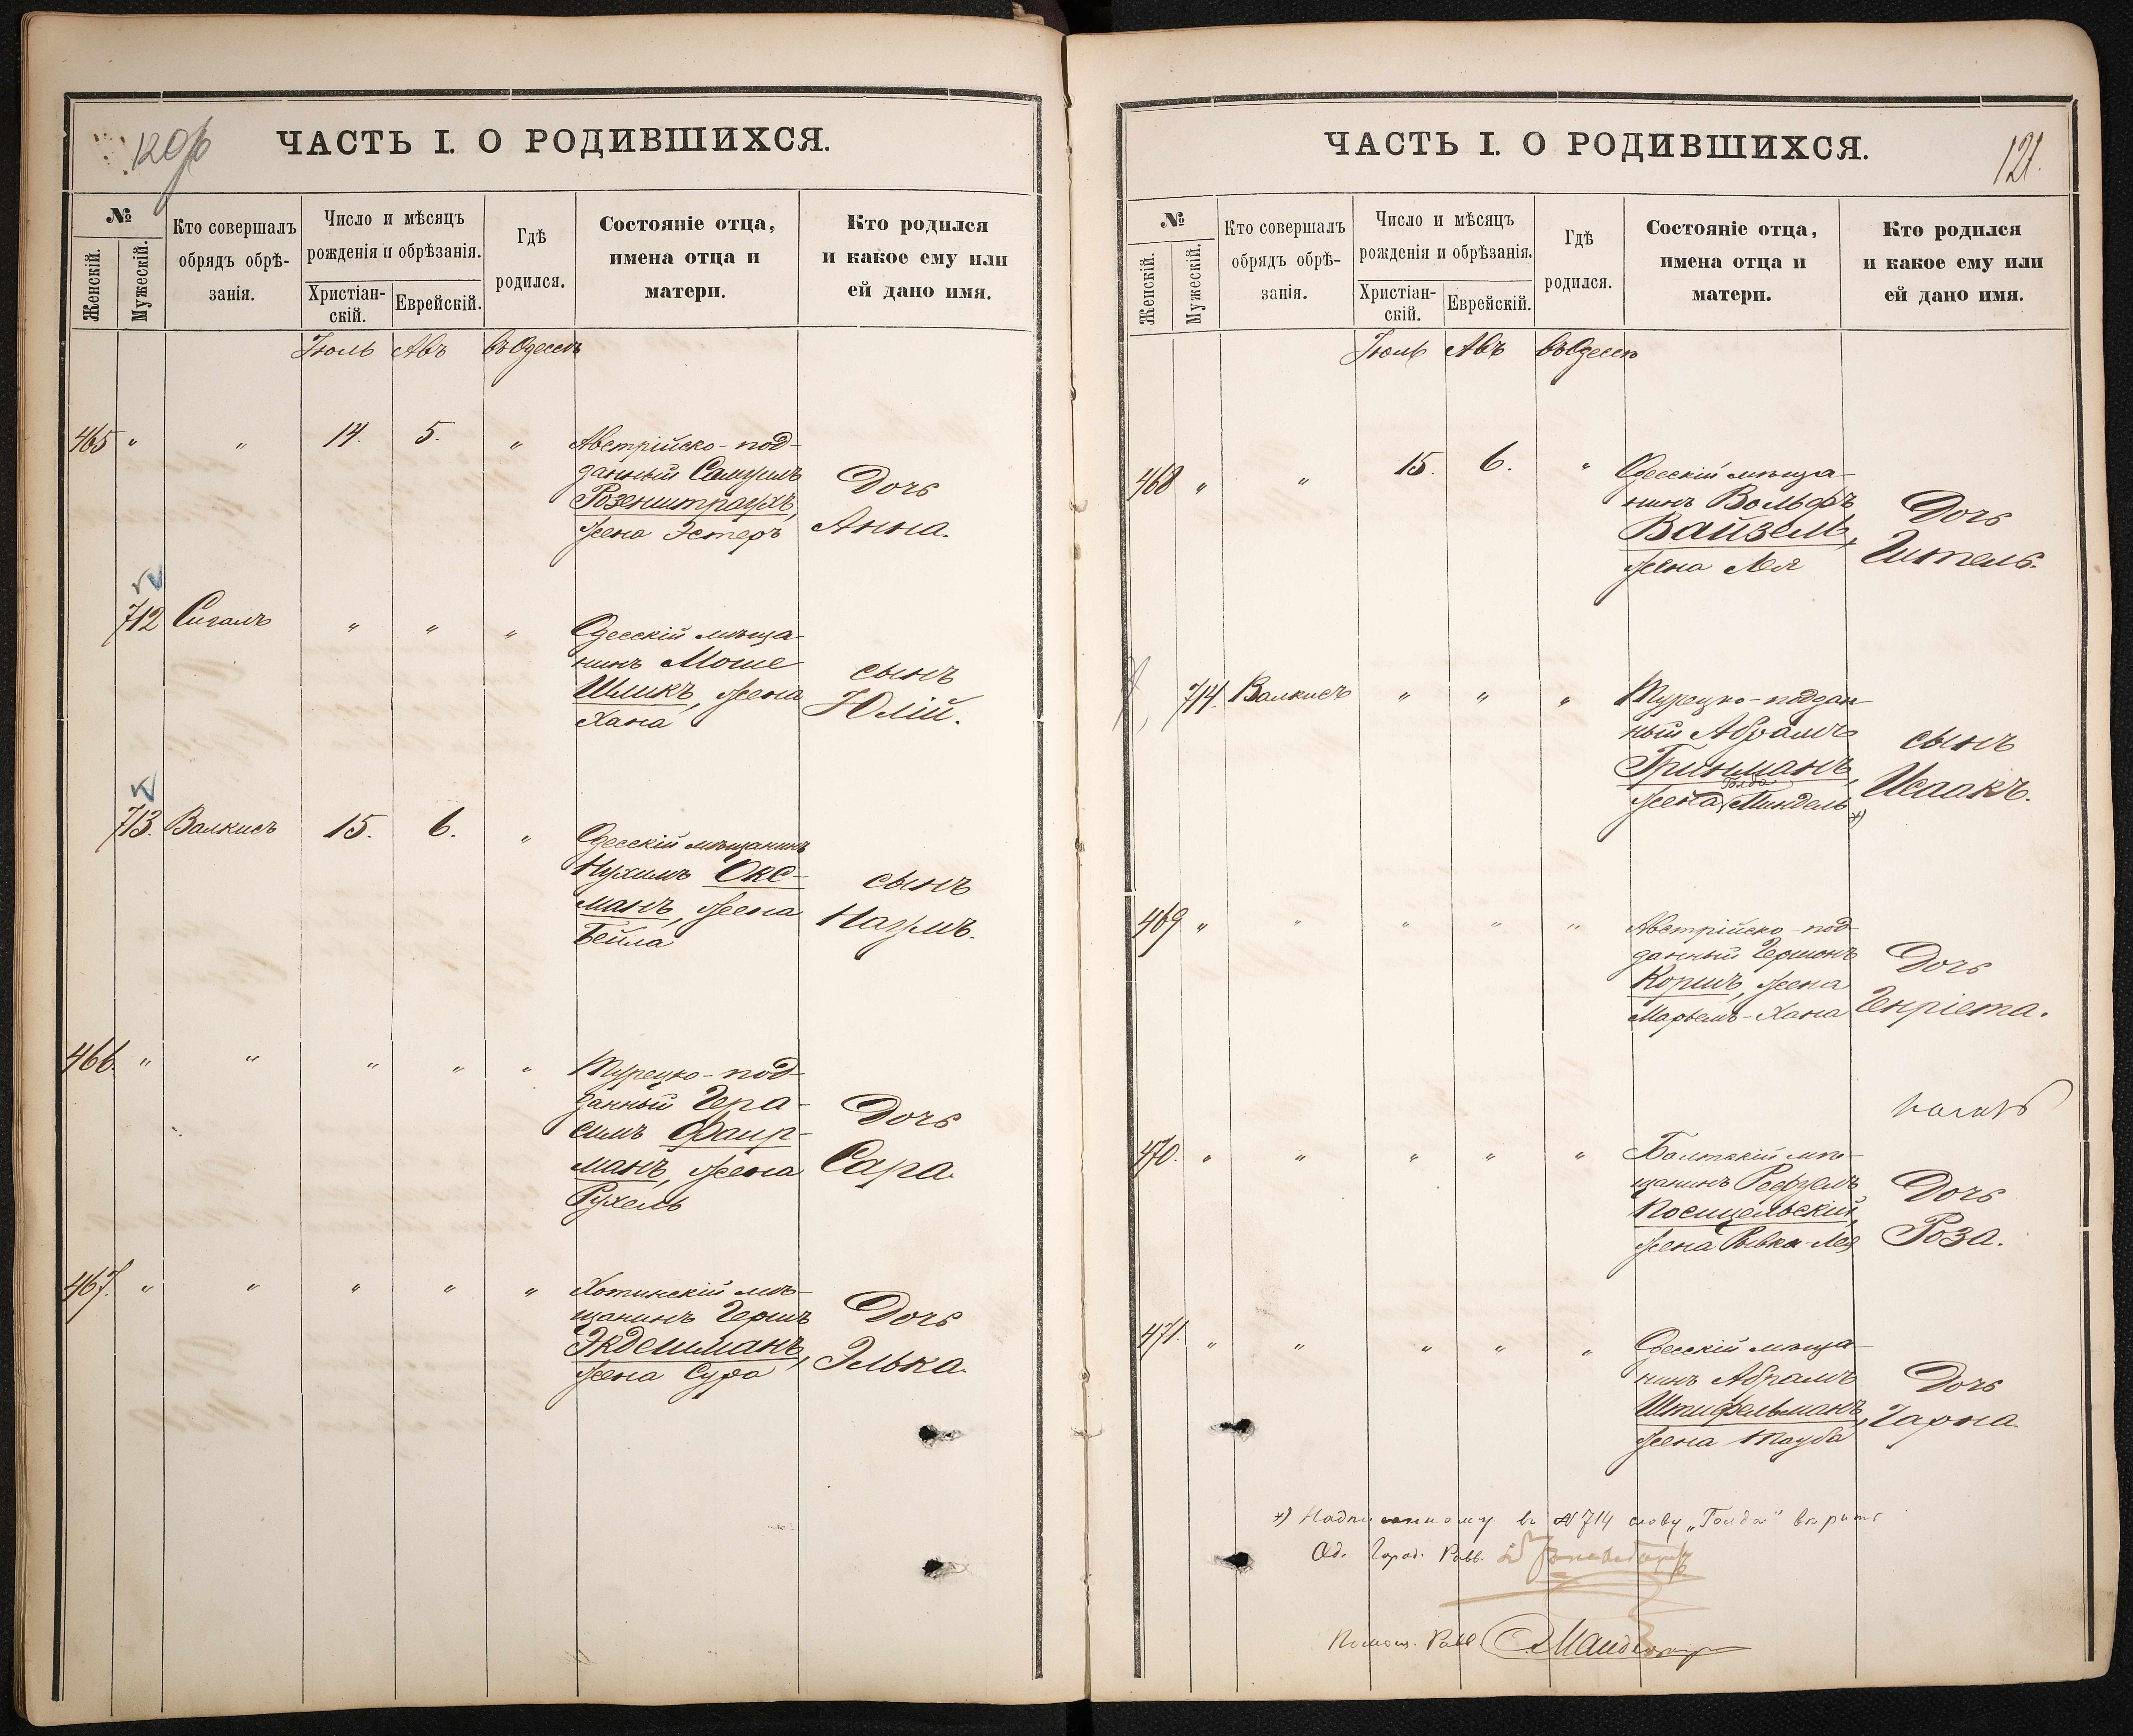 120 об
ЧАСТЬ I. О РОДИВШИХСЯ.
№
Женскій.
Мужескій.
Кто совершалъ
обрядъ обрѣ-
занія.
Число и мѣсяцъ
рожденія и обрѣзанія.
Христіан-
скій.
Еврейскій.
Гдѣ
родился.
Состояніе отца,
имена отца и
матери.
Кто родился
и какое ему или
ей дано имя.
Іюль Авъ въ Одессѣ
465 " " 14. 5. " Австрійско-под-
данный Самуилъ
Розенштраухъ,
жена Эстеръ
Дочь
Анна.
712 Сигалъ " " " Одесскій мѣща-
нинъ Моше
Шликъ, жена
Хана
сынъ
Юлій.
713. Валкисъ 15. 6. " Одесскій мѣщанинъ
Нухимъ Окс-
манъ, жена
Бейла
сынъ
Наумъ.
466. " " " " " Турецко-под-
данный Гера-
симъ Фаир-
манъ, жена
Рухель
Дочь
Сара.
467. " " " " " Хотинскій мѣ-
щанинъ Гершъ
Экдешманъ,
жена Сура
Дочь
Элька.
121.
ЧАСТЬ I. О РОДИВШИХСЯ.
№
Женскій.
Мужескій.
Кто совершалъ
обрядъ обрѣ-
занія.
Число и мѣсяцъ
рожденія и обрѣзанія.
Христіан-
скій.
Еврейскій.
Гдѣ
родился.
Состояніе отца,
имена отца и
матери.
Кто родился
и какое ему или
ей дано имя.
Іюль Авъ въ Одессѣ
468 " " 15. 6. " Одесскій мѣща-
нинъ Вольфъ
Вайзель,
жена Лея
Дочь
Гитель.
714. Валкисъ " " " Турецко-поддан-
ный Абрамъ
Гринманъ,
Голда
жена Миндель *)
сынъ
Исаакъ.
469 " " " " " Австрійско-под-
данный Гершонъ
Коршъ, жена
Марьемъ-Хана
Дочь
Генріета.
470. " " " " " Балтскій мѣ-
щанинъ Рефуелъ
Посицельскій,
жена Ривка-Лея
Дочь
Роза.
471. " " " " " Одесскій мѣща-
нинъ Абрамъ
Штифельманъ,
жена Тауба
Дочь
Гарна.
*) Надписанному въ № 714 слову „Голда" вѣрить
Од. Город. Равв.
Помощ. Равв.